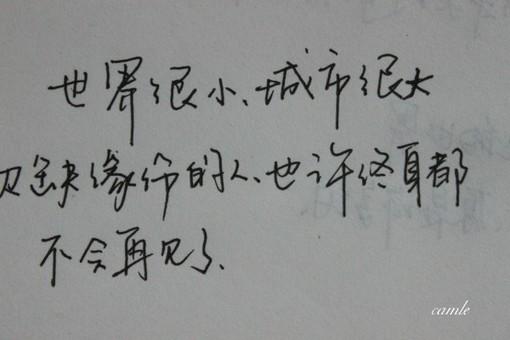 世界很小、城市很大
欠缺缘份的人、也许终身都
不会再见了、
camle